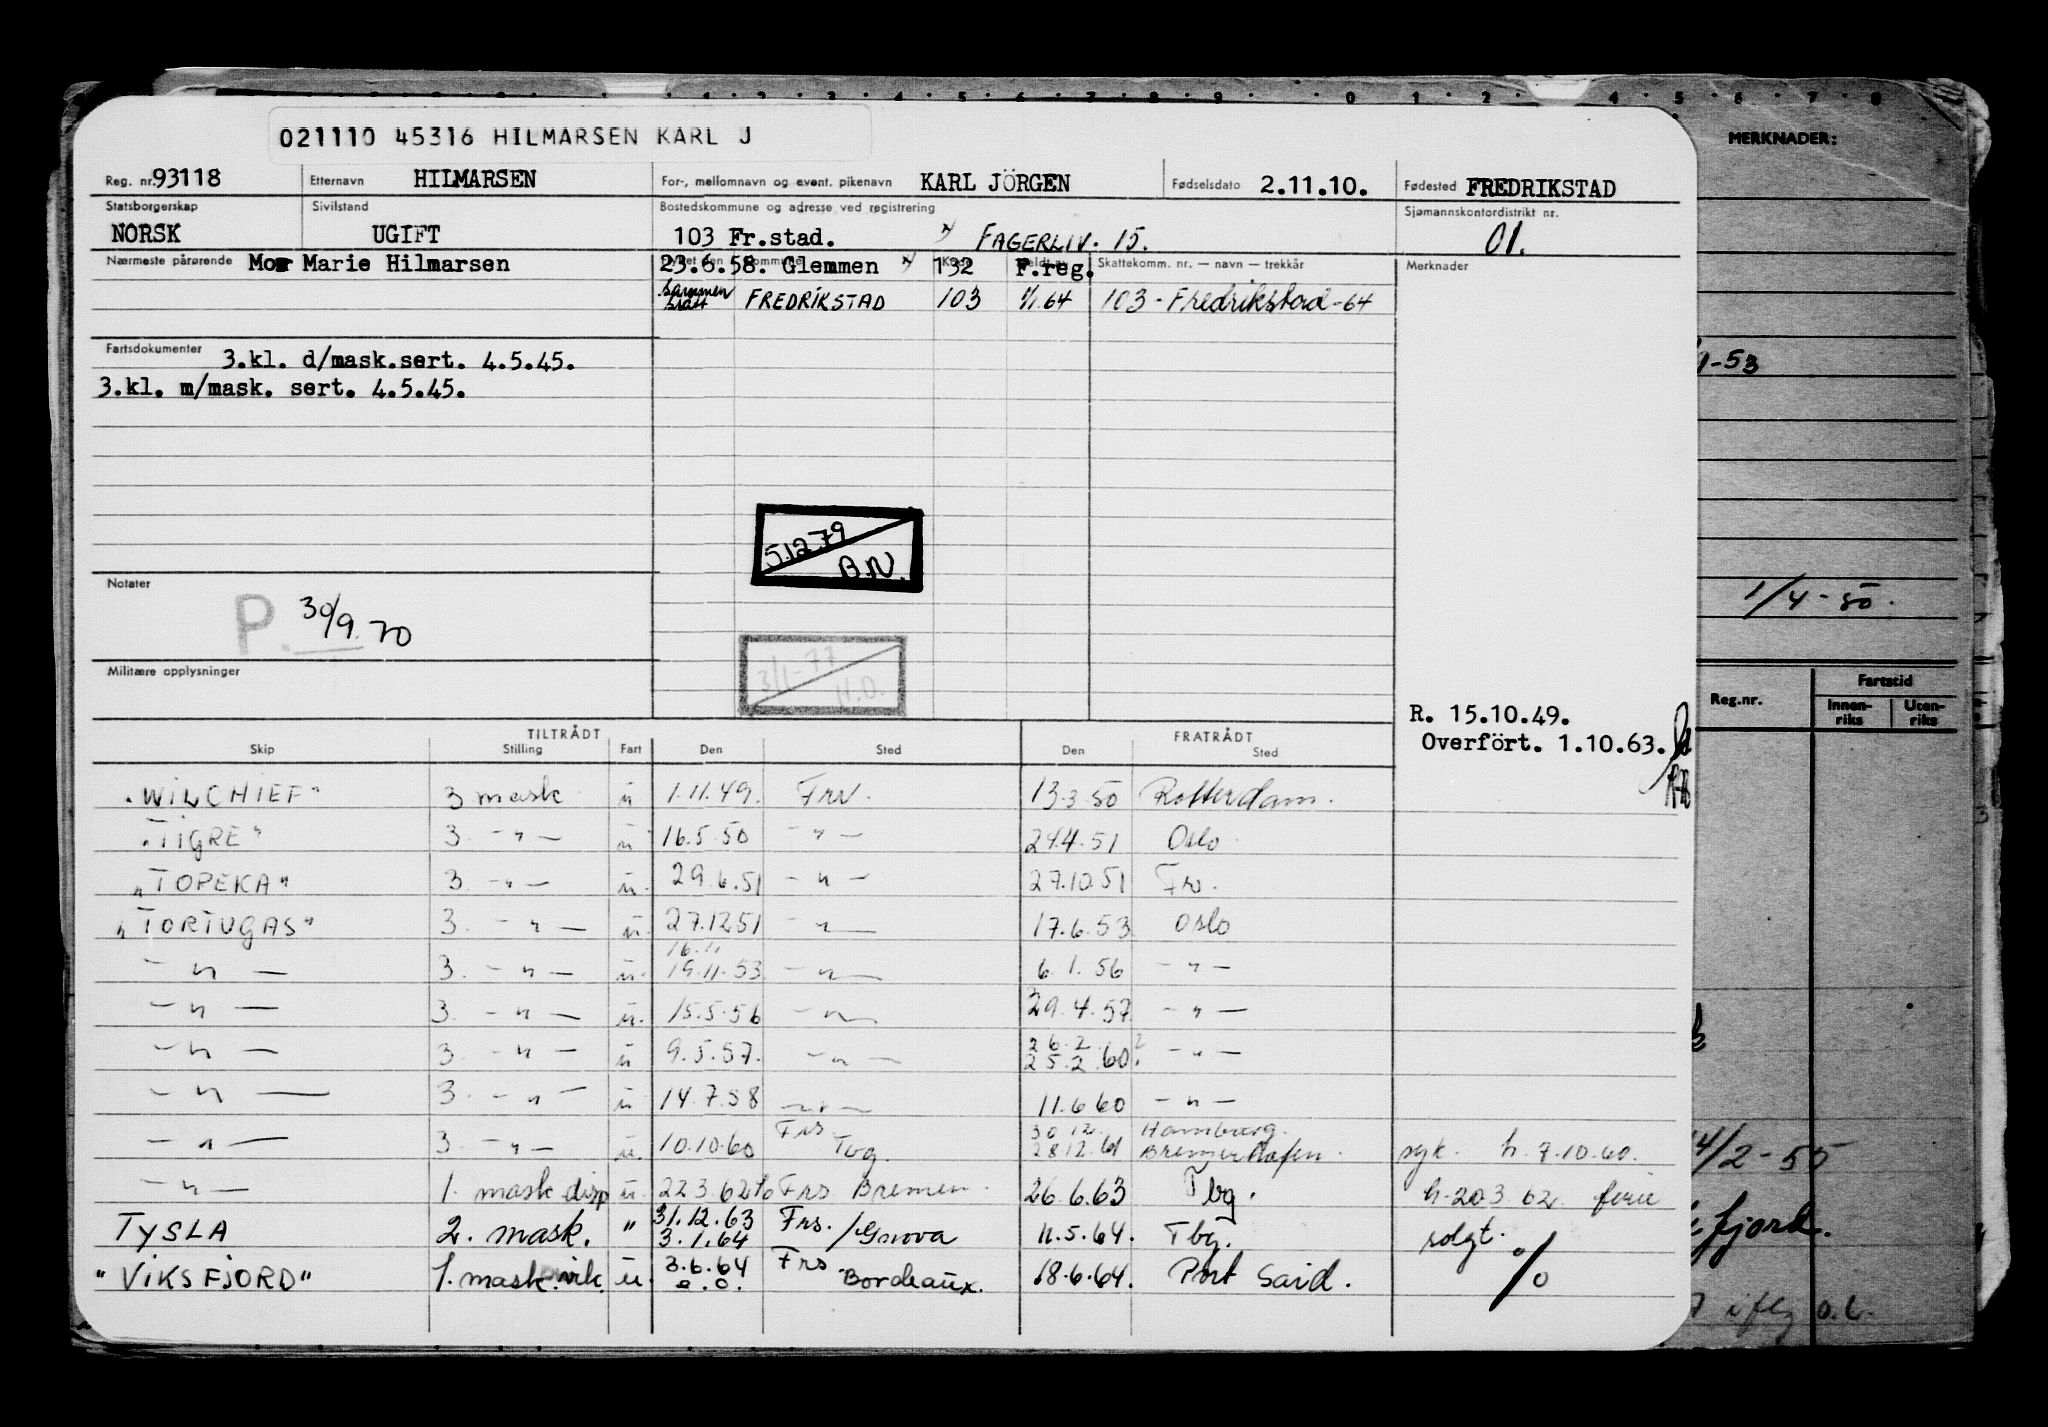 021110 45316 HILMARSEN KARL J
MERKNADER:
Reg. nr. 93118 Etternavn HILMARSEN For-, mellomnavn og event. pikenavn KARL JÖRGEN Fødselsdato 2.11.10. Fødested FREDRIKSTAD
Statsborgerskap Sivilstand Bostedskommune og adresse ved registrering Sjømannskontordistrikt nr.
NORSK UGIFT 103 Fr.stad. FAGERLIV. 15. 01.
Nærmeste pårørende Mor Marie Hilmarsen 23.6.58. Glemmen 132 F.reg. Skattekomm. nr. — navn — trekkår Merknader
FREDRIKSTAD 103 1/1.64 103 - Fredrikstad-64
Fartsdokumenter 3.kl. d/mask.sert. 4.5.45.
3.kl. m/mask. sert. 4.5.45.
-53
5.12.79
B.N.
Notater
P. 30/9.70
1/4-50.
3/1-77
H.O.
Militære opplysninger
Reg.nr. Fartstid
Innen-riks Uten-riks
R. 15.10.49.
Overfört. 1.10.63.
TILTRÅDT FRATRÅDT
Skip Stilling Fart Den Sted Den Sted
"WILCHIEF" 3 mask u 1.11.49. Frv. 13.3 50 Rotterdam.
"TIGRE" 3. -"- u 16.5.50 -"- 24.4.51 Oslo.
"TOPEKA" 3 -"- u. 29.6.51 -"- 27.10.51 Frs.
"TORTUGAS" 3. -"- u. 27.12.51 -"- 17.6.53 Oslo
16.11
-"- 3. -"- u. 19.11.53 -"- 6.1.56 -"-
-"- 3. -"- u. 15.5.56 -"- 29.4.57. -"-
26.2.
-"- 3. -"- u 9.5.57. -"- 25.2.60. -"-
-"- 3. -"- u 14.7.58 -"- 11.6 60 -"-
Frs. 30 12. Hamburg.
-"- 3. -"- u. 10.10.60 Tbg. 28.12.61 Bremerhafen. syk. h. 7.10.60.
4/2-55
-"- 1. mask disp u. 22.3.62 Frs Bremen. 26.6.63 Tbg. h. 20.3 62. ferie
31.12.63 Frs.
TYSLA 2. mask. " 3.1.64 /Genova 11.5.64. Tbg. solgt.
fjord.
3.6.64 Frs.
"VIKSFJORD" 1. mask. vik. u. e.o. Bordeaux. 18.6.64. Port Said. %